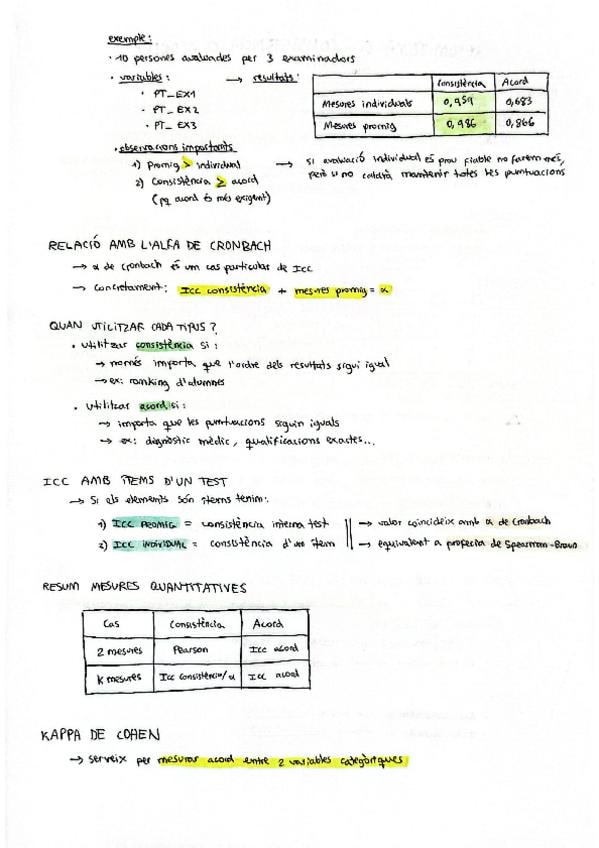 exemple:
· 10 persones avaluades per 3 examinadors
· variables: → resultats:
· PT_EX1
· PT_EX2
· PT_EX3
Consistència Acord
Mesures individuals 0,959 0,683
Mesures promig 0,986 0,866
· observacions importants
1) Promig > individual → si avaluació individual és prou fiable no farem més,
2) Consistència ≥ acord però si no caldrà mantenir totes les puntuacions
(pq acord és més exigent)
RELACIÓ AMB L'ALFA DE CRONBACH
→ α de Cronbach és un cas particular de ICC
→ Concretament: ICC consistència + mesures promig = α
QUAN UTILITZAR CADA TIPUS?
· Utilitzar consistència si:
→ només importa que l'ordre dels resultats sigui igual
→ ex: ranking d'alumnes
· Utilitzar acord si:
→ importa que les puntuacions siguin iguals
→ ex: diagnòstic mèdic, qualificacions exactes...
ICC AMB ÍTEMS D'UN TEST
→ Si els elements són ítems tenim:
1) ICC PROMIG = consistència interna test → valor coincideix amb α de Cronbach
2) ICC INDIVIDUAL = consistència d'un ítem → equivalent a profecia de Spearman-Brown
RESUM MESURES QUANTITATIVES
Cas Consistència Acord
2 mesures Pearson Icc acord
K mesures Icc consistència/α Icc acord
KAPPA DE COHEN
→ serveix per mesurar acord entre 2 variables categòriques